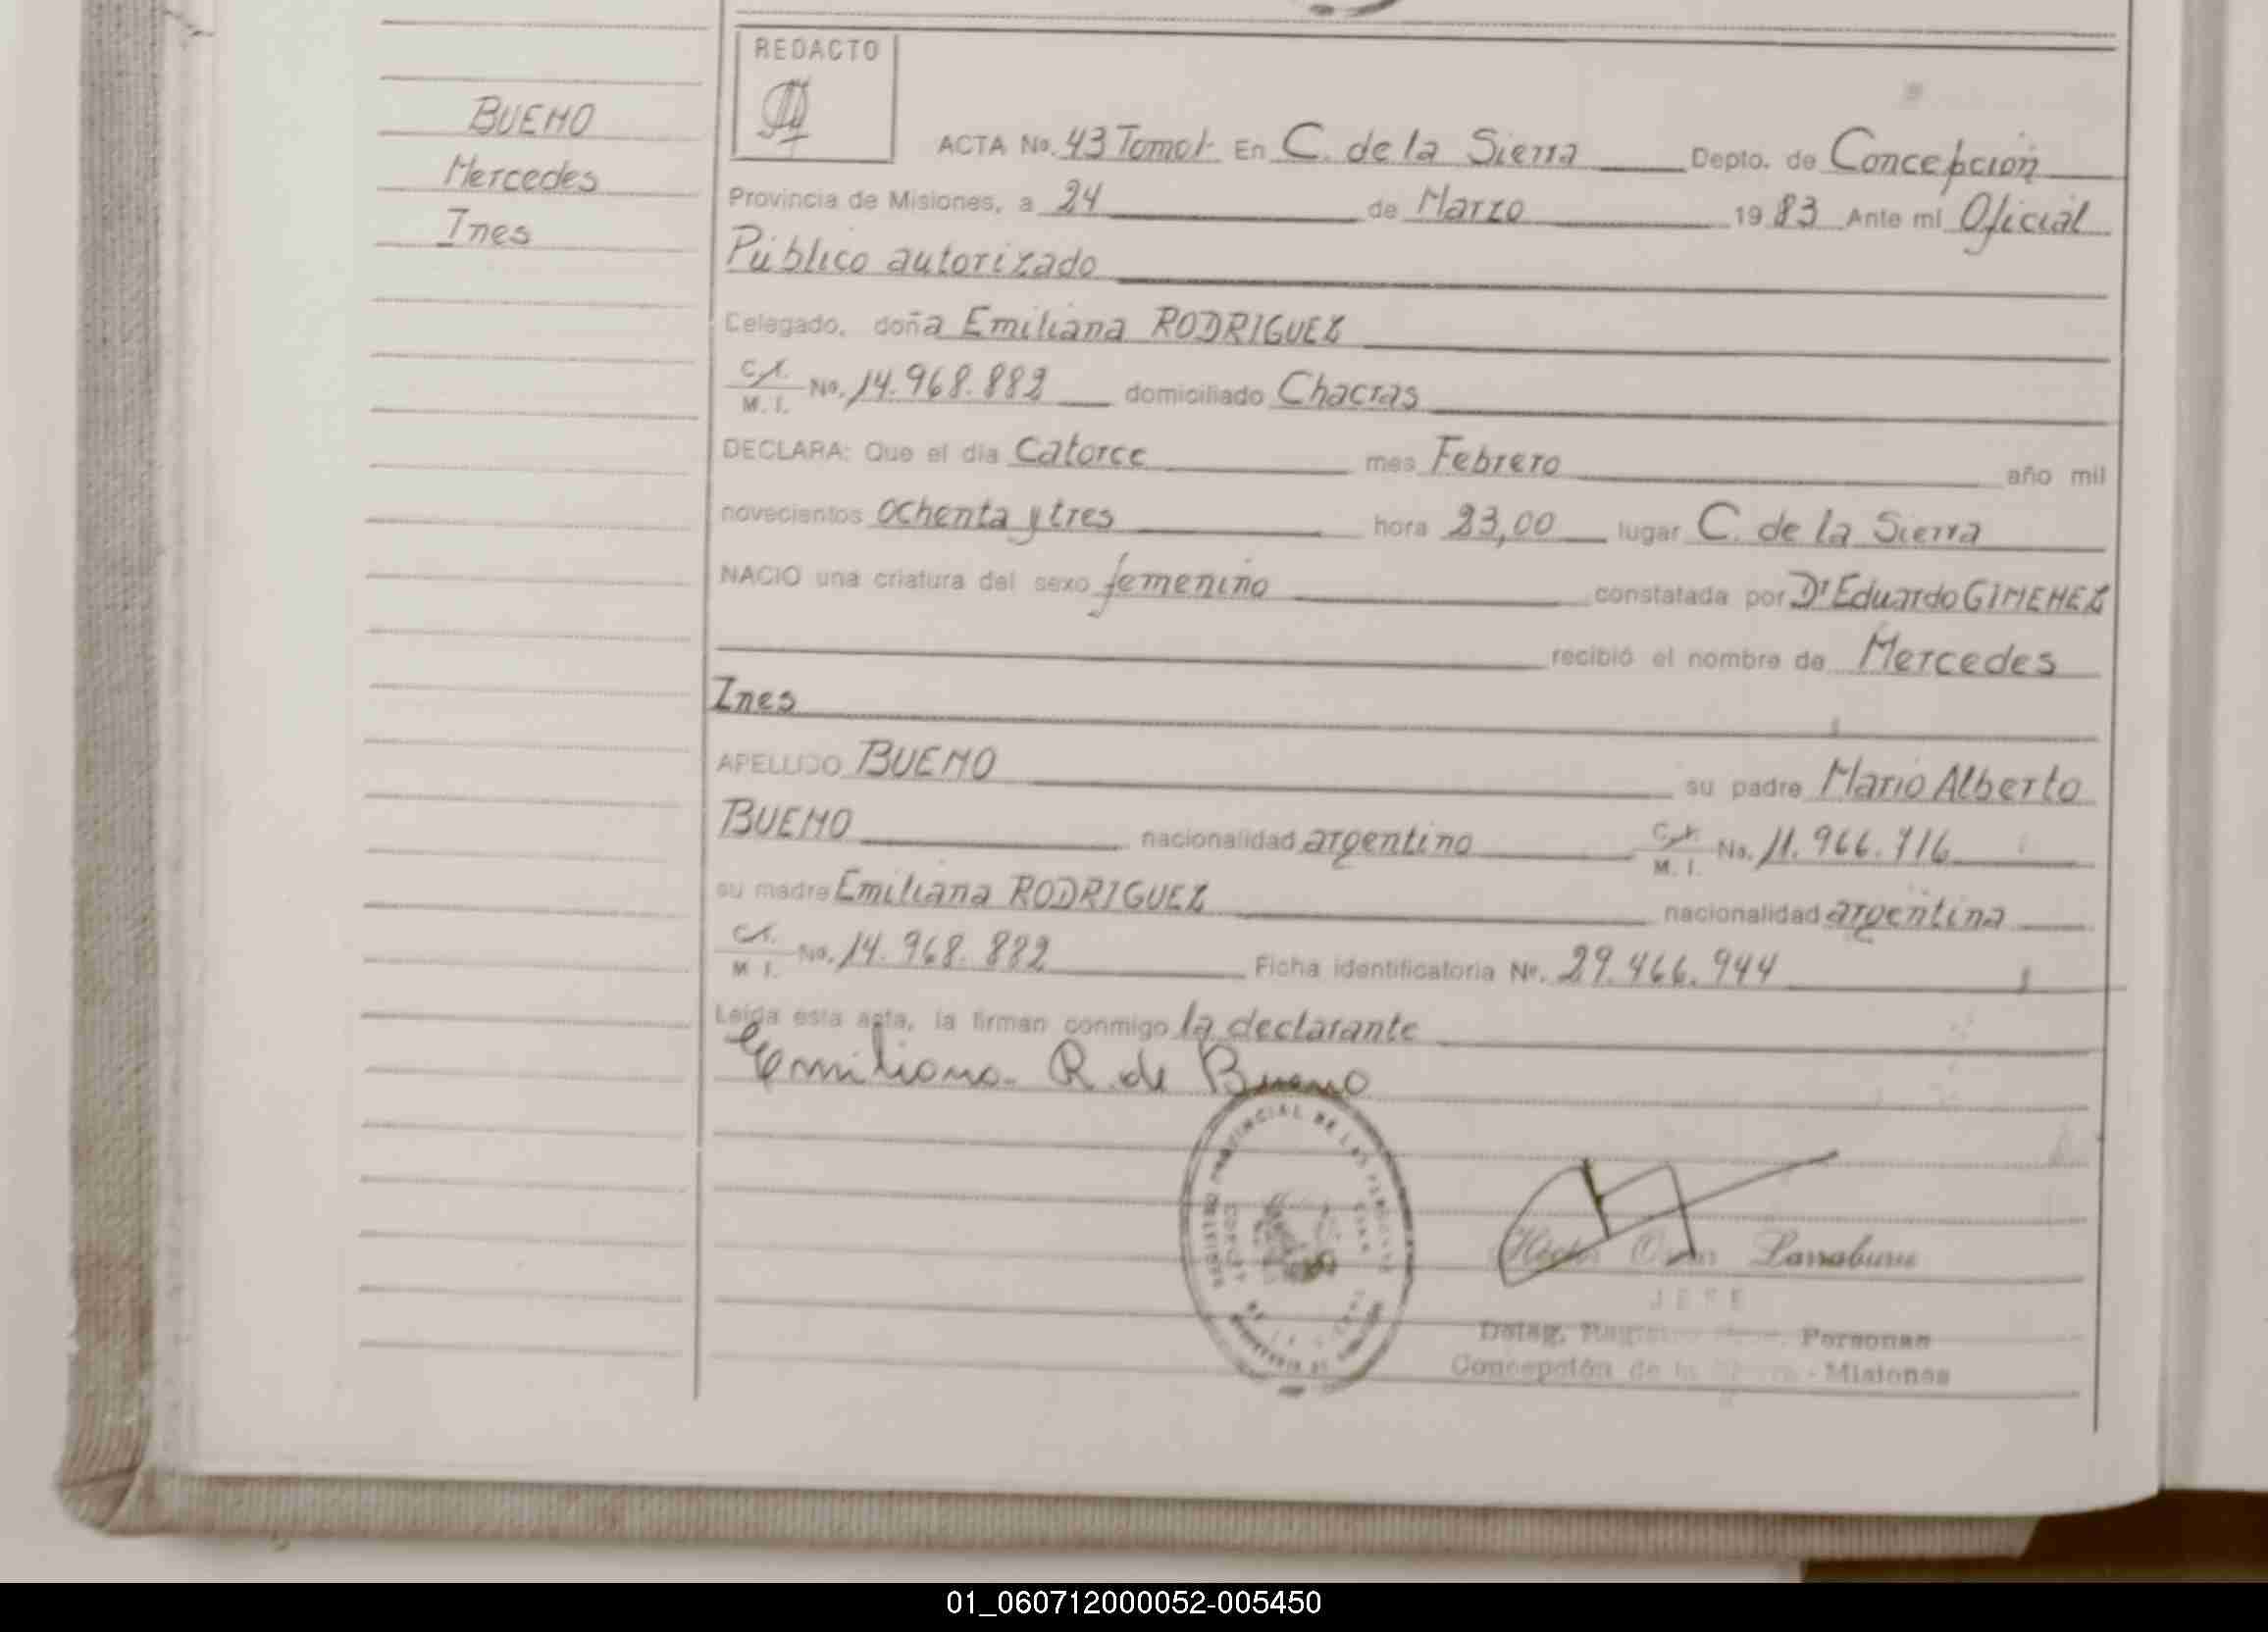 REDACTO
BUENO
Mercedes
Ines
ACTA No. 43 Tomo I En C. de la Sierra Depto. de Concepción
Provincia de Misiones, a 24 de Marzo 19 83 Ante mi Oficial
Público autorizado
Delegado, doña Emiliana RODRIGUEZ
C.I. M. I. No. 14.968.882 domiciliado Chacras
DECLARA: Que el día Catorce mes Febrero año mil
novecientos ochenta y tres hora 23,00 lugar C. de la Sierra
NACIO una criatura del sexo femenino constatada por Dr Eduardo GIMENEZ
recibió el nombre de Mercedes
Ines
APELLIDO BUENO su padre Mario Alberto
BUENO nacionalidad argentino C.I. M. I. No. 11.966.716
su madre Emiliana RODRIGUEZ nacionalidad argentina
C.I. M. I. No. 14.968.882 Ficha identificatoria Nº. 29.466.944
Leída esta acta, la firman conmigo la declarante
Emiliana R. de Bueno
REGISTRO PROVINCIAL DE LAS PERSONAS
JEFE
Deleg. Personas
Concepción de la - Misiones
01_060712000052-005450